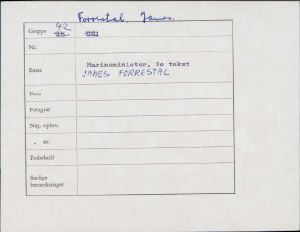 Forrestal, James.
Gruppe 42
Nr.
Emne Marineminister. Se tekst
JAMES FORRESTAL
Dato
Fotograf
Neg. opbev.
" nr.
Forbehold
Særlige
bemærkninger